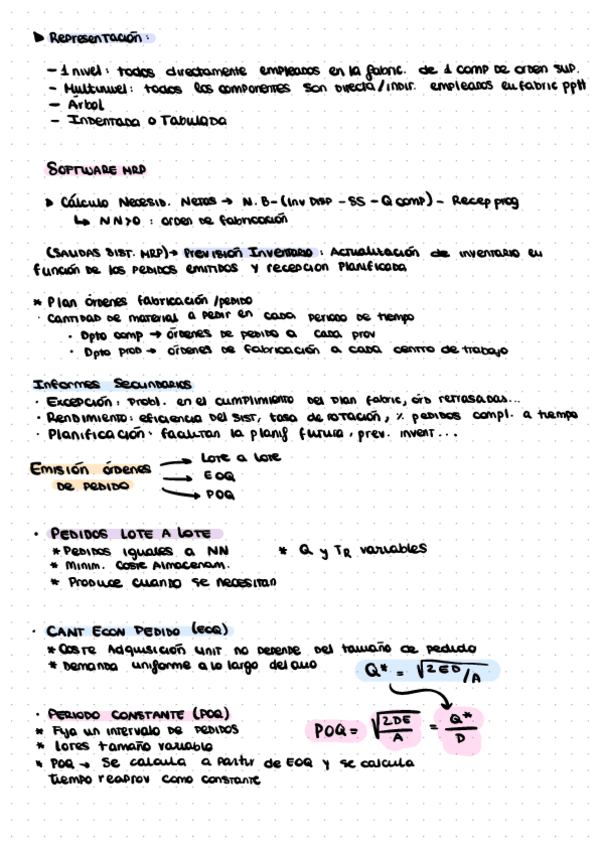 ▶ Representación:
- 1 nivel: todos directamente empleados en la fabric. de 1 comp de orden sup.
- Multinivel: todos los componentes son directa/indir. empleados en fabric ppal
- Árbol
- Indentada o Tabulada
Software MRP
▶ Cálculo Necesid. Netas → N.B-(Inv Disp - SS - Q comp) - Recep prog
↳ NN>0: orden de fabricación
(Salidas sist. MRP) → Previsión Inventario: Actualización de inventario en
función de los pedidos emitidos y recepcion planificada
* Plan órdenes fabricación/pedido
· Cantidad de material a pedir en cada periodo de tiempo
· Dpto comp → órdenes de pedido a cada prov
· Dpto prod → órdenes de fabricación a cada centro de trabajo
Informes Secundarios
· Excepción: Probl. en el cumplimiento del plan fabric, órd retrasadas...
· Rendimiento: eficiencia del sist, tasa de rotación, % pedidos compl. a tiempo
· Planificación: facilitan la planif futura, prev. invent...
Emisión órdenes de pedido
→ Lote a lote
→ EOQ
→ POQ
· Pedidos lote a lote
* Pedidos iguales a NN * Q y TR variables
* Minim. coste Almacenam.
* Produce cuando se necesitan
· Cant Econ Pedido (EOQ)
* Coste Adquisición unit no depende del tamaño de pedido
* Demanda uniforme a lo largo del año Q* = √2ED/A
· Periodo constante (POQ)
* Fija un intervalo de pedidos POQ = √2DE/A = Q*/D
* lotes tamaño variable
* POQ → Se calcula a partir de EOQ y se calcula
tiempo reaprov como constante